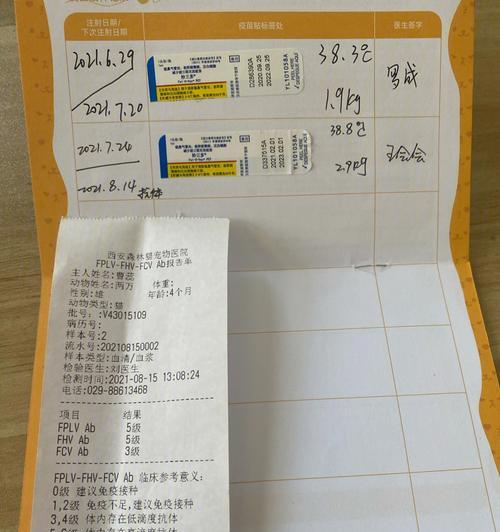 注射日期/
下次注射日期
疫苗贴标签处
医生签字
2021.6.29
2021.7.20
妙三多®
D286390A
2020.09.25
2022.09.25
YL101058A
38.3℃
1.9kg
2021.7.24
2021.8.14 抗体
妙三多®
D337515A
2021.02.01
2023.02.01
YL101058A
38.8℃
2.9kg
西安森林猫宠物医院
FPLV-FHV-FCV Ab报告单
主人姓名:曹蕊
动物姓名:两万 体重:
性别:雄 年龄:4个月
动物类型:猫
批号: :V43015109
病历号:
样本号:2
流水号:202108150002
样本类型:血清/血浆
检验医生:刘医生
检测时间:2021-08-15 13:08:24
电话:029-88613468
项目 结果
FPLV Ab 5级
FHV Ab 5级
FCV Ab 3级
FPLV-FHV-FCV Ab 临床参考意义:
0级 建议免疫接种
1,2级 免疫不足,建议免疫接种
3,4级 体内存在低滴度抗体